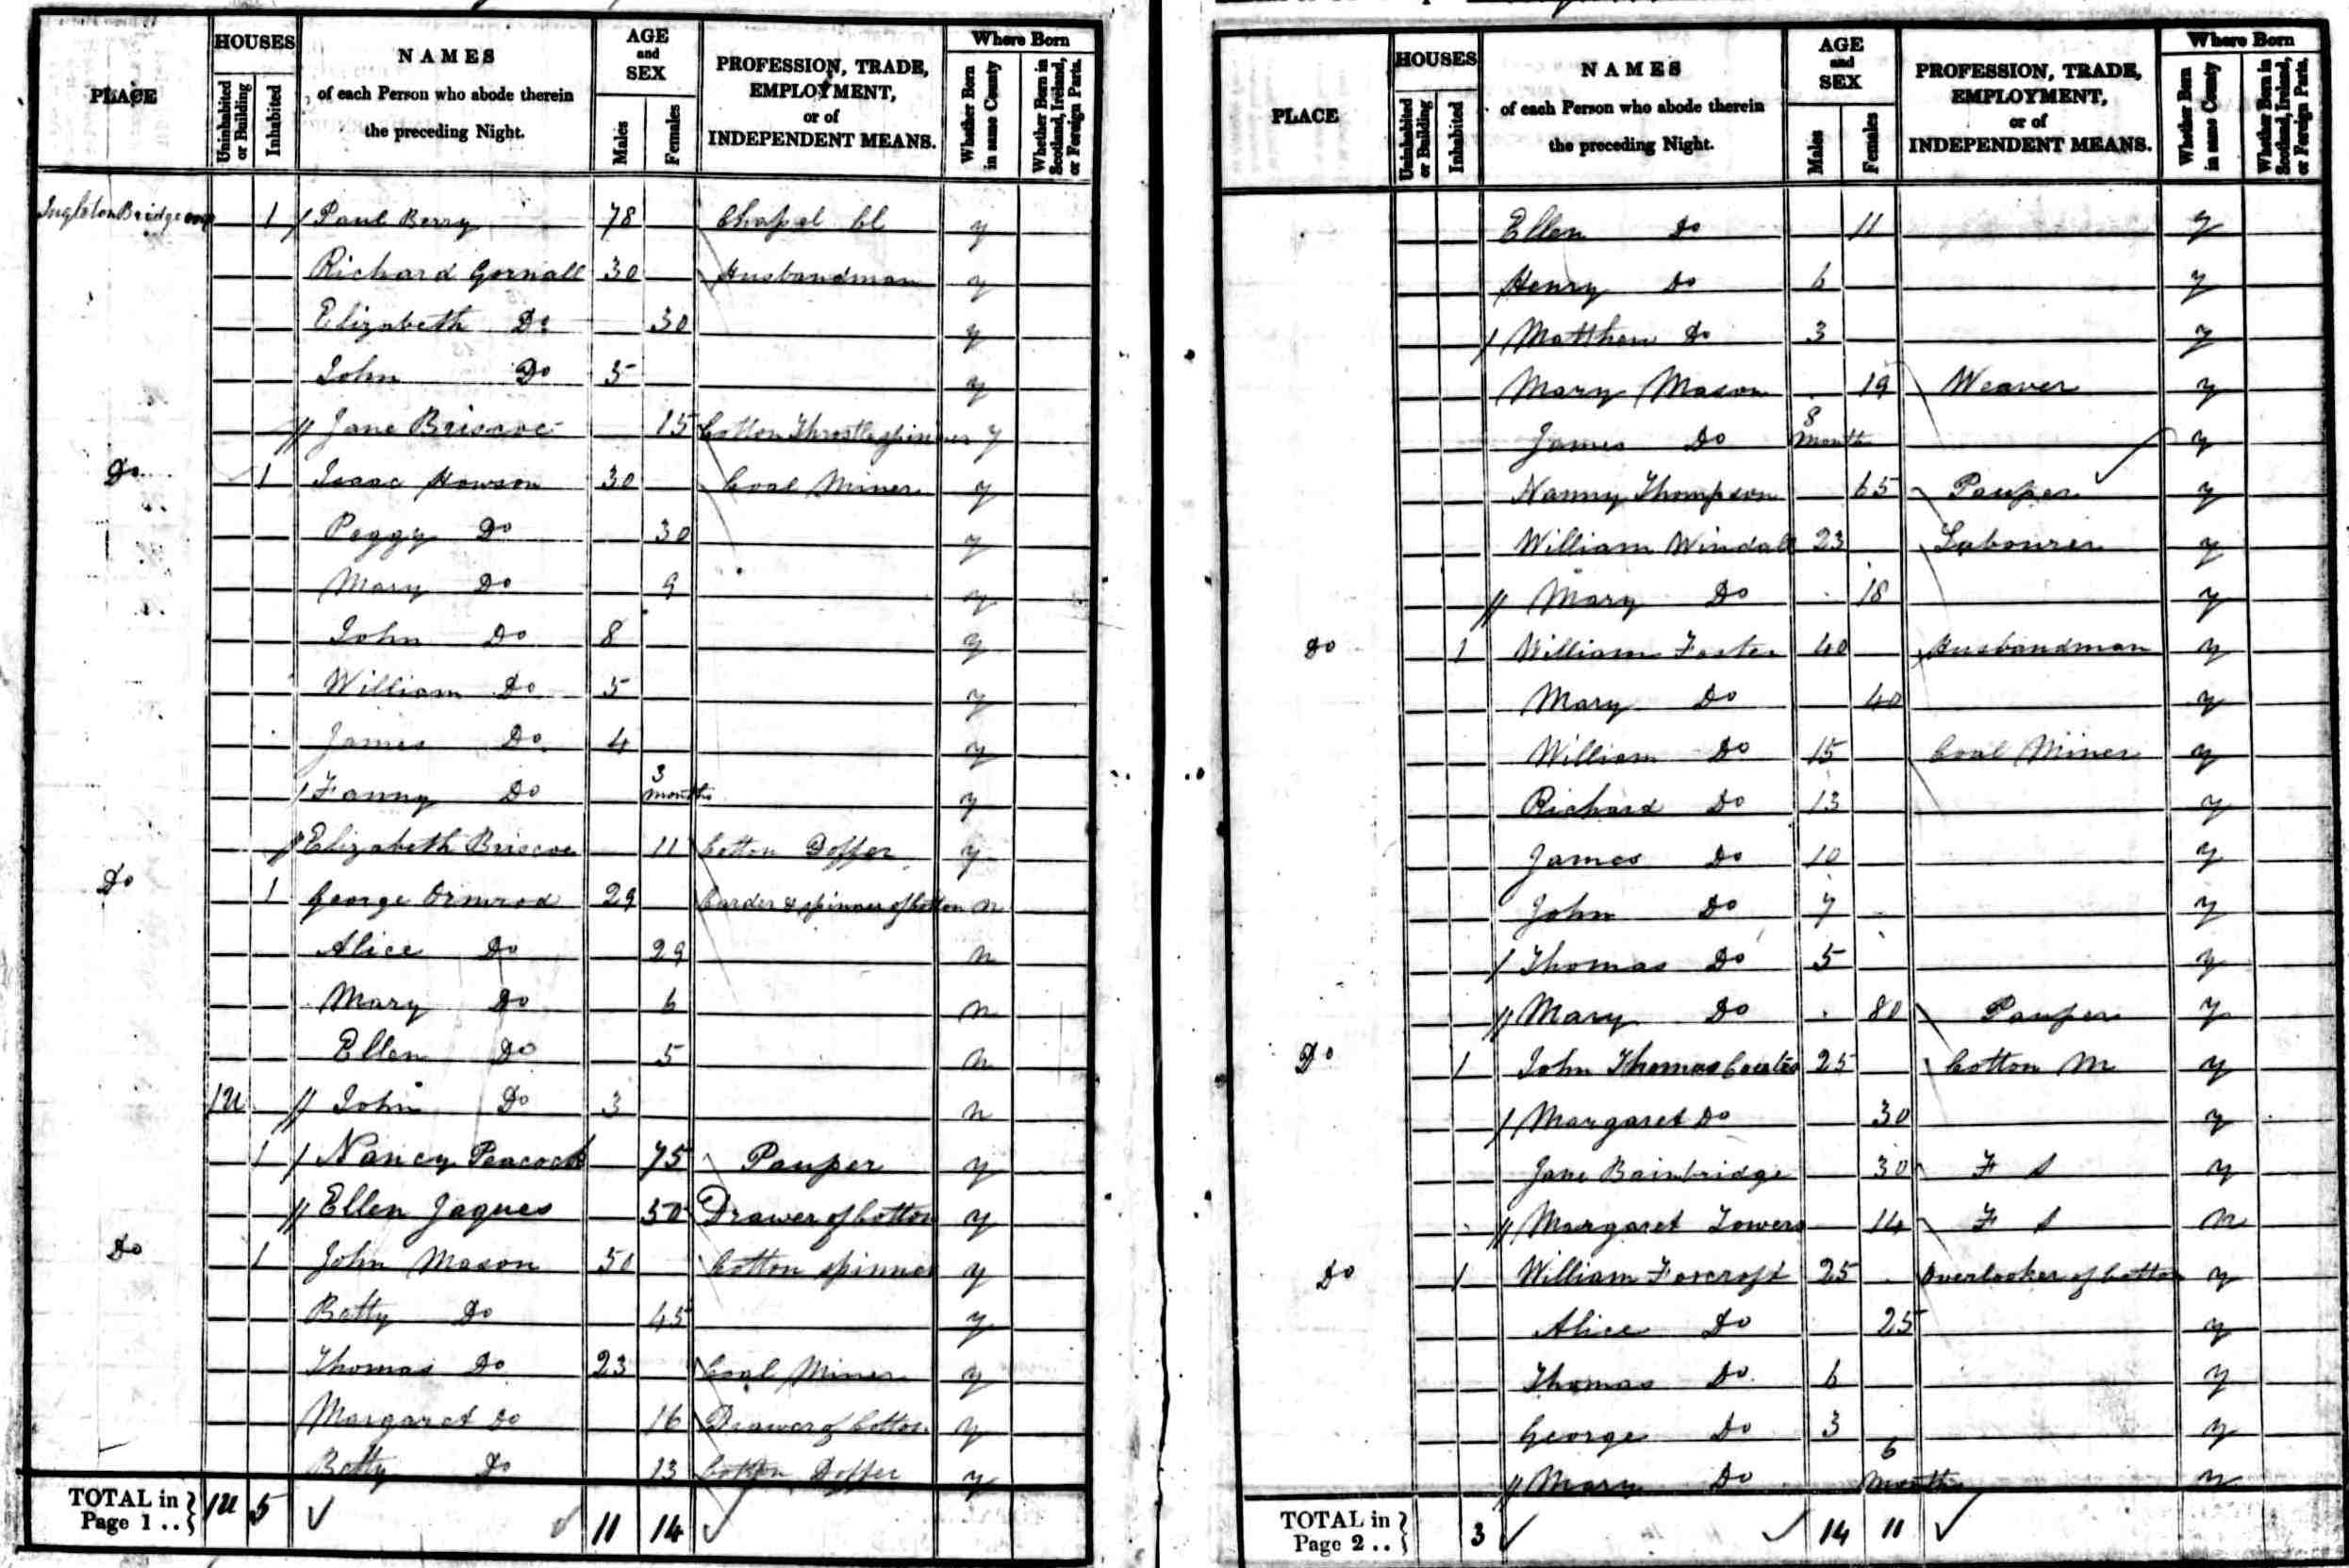 PLACE HOUSES Uninhabited or Building Inhabited NAMES of each Person who abode therein the preceding Night. AGE and SEX Males Females PROFESSION, TRADE, EMPLOYMENT, or of INDEPENDENT MEANS. Where Born Whether Born in same County Whether Born in Scotland, Ireland, or Foreign Parts.
Ingleton Bridge 1 / Paul Berry 78 Chapel Cl y
Richard Gornall 30 Husbandman y
Elizabeth Do 30 y
John Do 5 y
// Jane Briscoe 15 Cotton Throstle spinner y
Do 1 Isaac Howson 30 Coal Miner y
Peggy Do 30 y
Mary Do 9 y
John Do 8 y
William Do 5 y
James Do 4 y
/ Fanny Do 3 months y
// Elizabeth Briscoe 11 Cotton Doffer y
Do 1 George Ormrod 29 Carder & spinner of Cotton n
Alice Do 29 n
Mary Do 6 n
Ellen Do 5 n
1U // John Do 3 n
1 / Nancy Peacock 75 Pauper y
// Ellen Jaques 50 Drawer of Cotton y
Do 1 John Mason 50 Cotton spinner y
Betty Do 45 y
Thomas Do 23 Coal Miner y
Margaret Do 16 Drawer of Cotton y
Betty Do 13 Cotton Doffer y
TOTAL in Page 1 .. } 1U 5 ✓ ✓ 11 14 ✓
PLACE HOUSES Uninhabited or Building Inhabited NAMES of each Person who abode therein the preceding Night. AGE and SEX Males Females PROFESSION, TRADE, EMPLOYMENT, or of INDEPENDENT MEANS. Where Born Whether Born in same County Whether Born in Scotland, Ireland, or Foreign Parts.
Ellen Do 11 y
Henry Do 6 y
/ Matthew Do 3 y
Mary Mason 19 Weaver y
James Do 8 month y
Nanny Thompson 65 Pauper ✓ y
William Windall 23 Labourer y
// Mary Do 18 y
Do 1 William Foster 40 Husbandman y
Mary Do 40 y
William Do 15 Coal Miner y
Richard Do 13 y
James Do 10 y
John Do 7 y
/ Thomas Do 5 y
// Mary Do 80 Pauper y
Do 1 John Thomas Coates 25 Cotton M y
/ Margaret Do 30 y
Jane Bainbridge 30 F S y
// Margaret Towers 14 F S n
Do 1 William Foxcroft 25 Overlooker of Cotton y
Alice Do 25 y
Thomas Do 6 y
George Do 3 y
// Mary Do 6 Months y
TOTAL in Page 2 .. } 3 ✓ ✓ 14 11 ✓